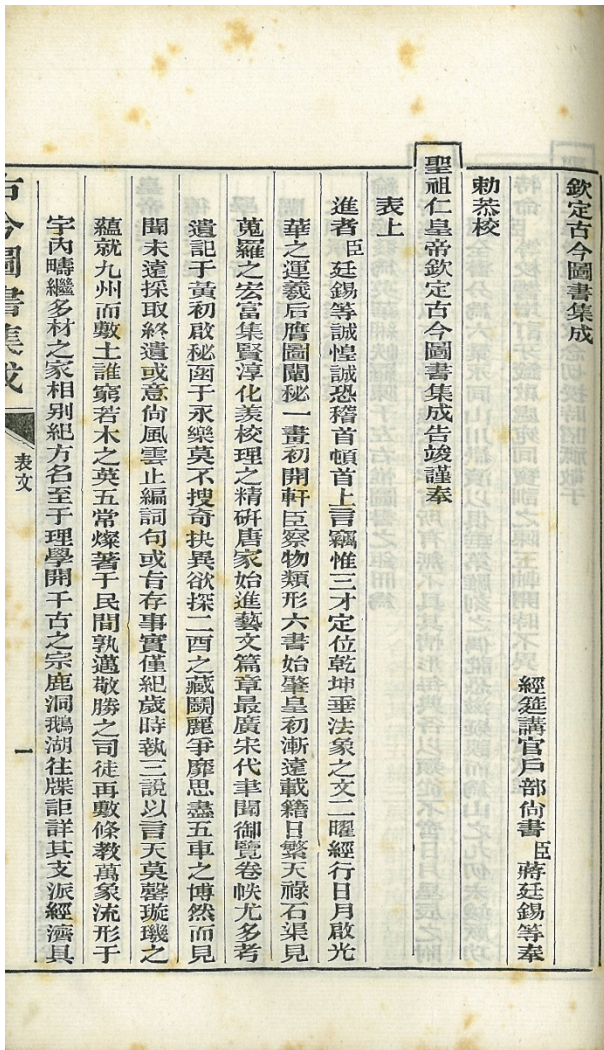 欽定古今圖書集成
經筵講官戶部尙書臣蔣廷錫等奉
勅恭校
聖祖仁皇帝欽定古今圖書集成告竣謹奉
表上
進者臣廷錫等誠惶誠恐稽首頓首上言竊惟三才定位乾坤垂法象之文二曜經行日月啟光
華之運羲后膺圖闡秘一畫初開軒臣察物類形六書始肇皇初漸遠載籍日繁天祿石渠見
蒐羅之宏富集賢淳化羨校理之精硏唐家始進藝文篇章最廣宋代聿開御覽卷帙尤多考
遺記于黃初啟秘函于永樂莫不搜奇抉異欲探二酉之藏鬭麗爭靡思盡五車之博然而見
聞未遠採取終遺或意尙風雲止編詞句或旨存事實僅紀歲時執三說以言天莫罄璇璣之
蘊就九州而敷土誰窮若木之英五常燦著于民間孰邁敬勝之司徒再敷條教萬象流形于
宇內疇繼多材之家相别紀方名至于理學開千古之宗鹿洞鵝湖往牒詎詳其支派經濟具
古今圖書集成
表文
一